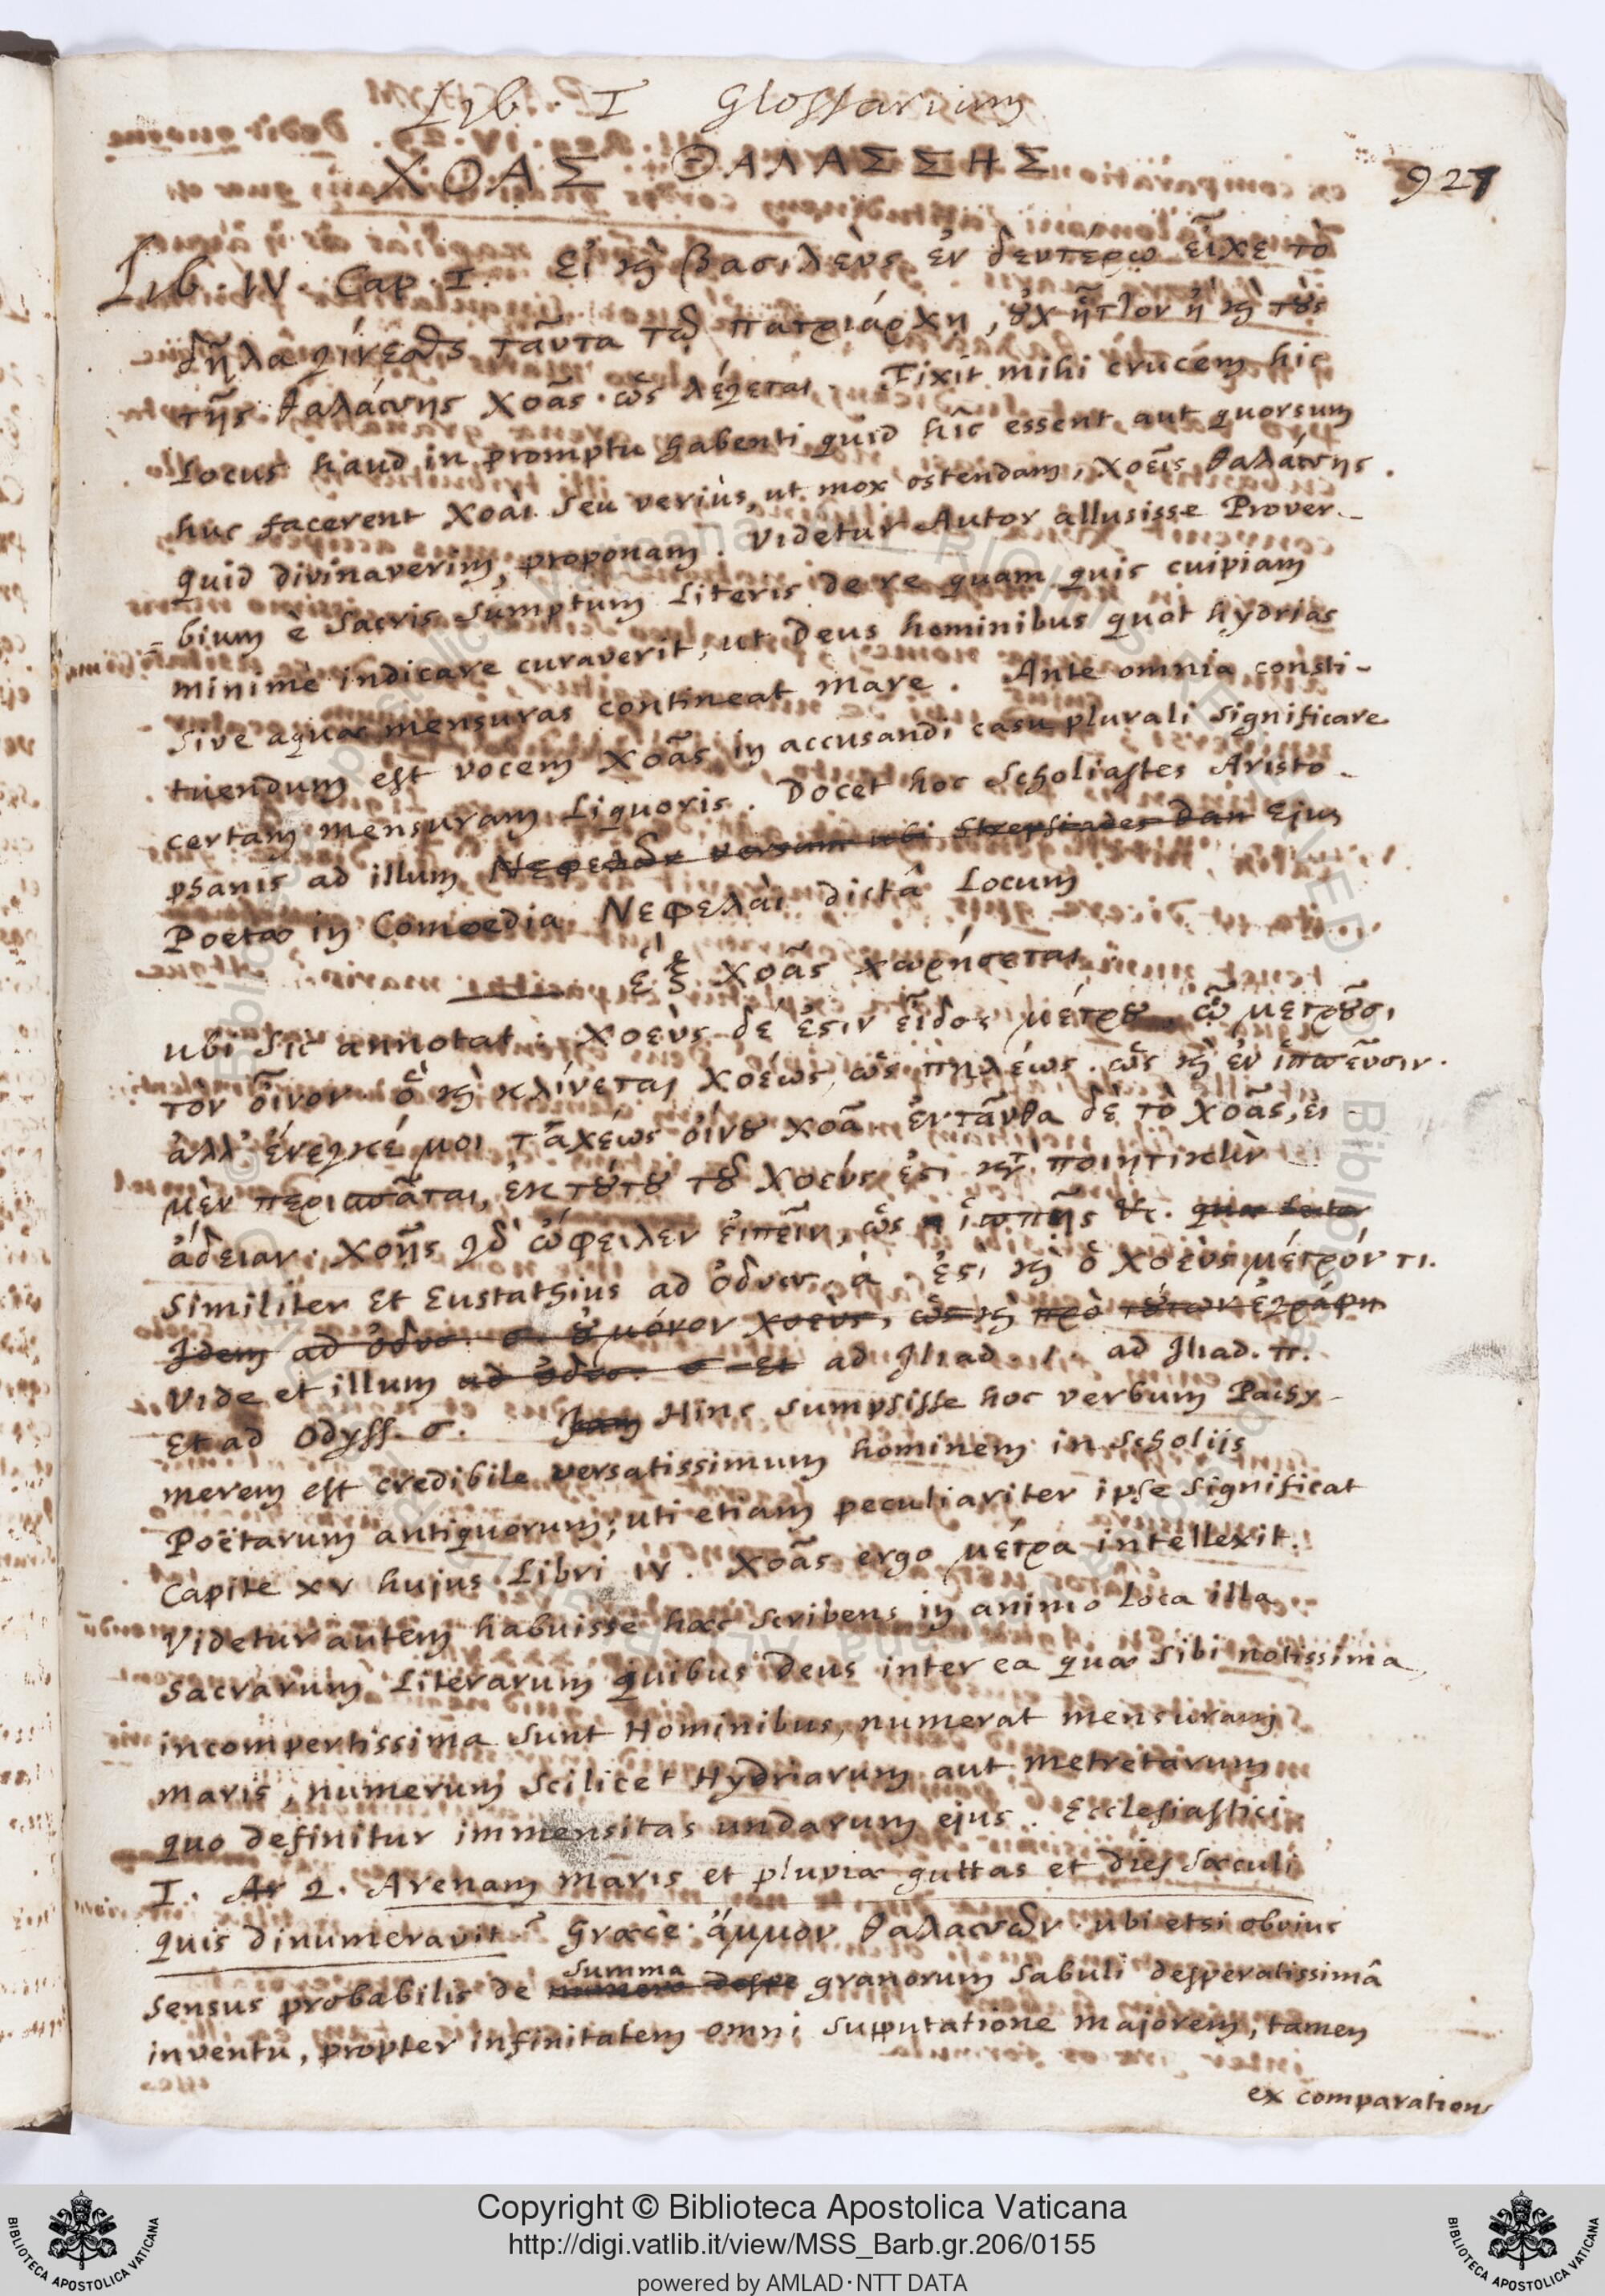 Lib. I Glossarium
927
ΧΟΑΣ ΘΑΛΑΣΣΗΣ
Lib. IV. Cap. I. Εἰ καὶ βασιλεὺς ἐν δευτέρῳ εἶχε τὸ
δῆλα γίνεσθαι ταῦτα τῷ πατριάρχῃ, οὐχ ἧττον ἢ καὶ τοὺς
τῆς θαλάσσης χοᾶς. ὡς λέγεται. Fixit mihi crucem hic
Locus haud in promptu habenti quid hîc essent, aut quorsum
huc facerent χοαὶ seu veriùs, ut mox ostendam, χοεῖς θαλάσσης.
quid divinaverim, proponam. Videtur Autor allusisse Prover-
-bium è Sacris Sumptum Literis de re quam quis cuipiam
minimè indicare curaverit, ut Deus hominibus quot hydrias
sive aquae mensuras contineat mare. Ante omnia consti-
tuendum est vocem χοᾶς in accusandi casu plurali significare
certam mensuram Liquoris. Docet hoc Scholiastes Aristo-
phanis ad illum Νεφελῶν versum ubi Strepsiades Dan Ejus
Poetae in Comoedia Νεφέλαι dictâ Locum
ἓξ χοᾶς χωρήσεται.
ubi sic annotat: χοεὺς δέ ἐστιν εἶδος μέτρου, ᾧ μετροῦσι
τὸν οἶνον. ὃ καὶ κλίνεται χοέως, ὡς πηλέως. ὡς καὶ ἐν ἱππεῦσιν.
ἀλλ' ἐνέγκέ μοι ταχέως οἴνου χοᾶ. ἐνταῦθα δὲ τὸ χοᾶς, εἰ
μὲν περισπᾶται, ἐκ τούτου τοῦ χοεύς ἐστι κατὰ ποιητικὴν
ἄδειαν. χοῆς γὰρ ὤφειλεν εἰπεῖν, ὡς ἱππῆς &c. quae
Similiter et Eustathius ad ὀδυσσ. ά. ἔστι καὶ ὁ χοεὺς μέτρόν τι.
Idem ad ὀδυσ. σ. οὐ μόνον χοεὺς, ὡς καὶ πρὸ τούτων ἐγράφη
Vide et illum ad ὀδυσ. σ Et ad Iliad. ί. ad Iliad. π.
Et ad Odyss. σ. Jam Hinc sumpsisse hoc verbum Pachy-
merem est credibile versatissimum hominem in Scholijs
Poëtarum antiquorum; uti etiam peculiariter ipse significat
Capite XV hujus Libri IV. χοᾶς ergo μέτρα intellexit.
Videtur autem habuisse haec scribens in animo Loca illa
Sacrarum Literarum quibus Deus inter ea quae sibi notissima,
incompertissima sunt Hominibus, numerat mensuram
maris, numerum scilicet Hydriarum aut metretarum
quo definitur immensitas undarum ejus. Ecclesiastici
I. Ar 2. Arenam maris et pluviae guttas et dies saeculi
quis dinumeravit? Graecè. ἄμμον θαλασσῶν. ubi etsi obvius
summa
sensus probabilis de numero despe granorum sabuli desperatissimâ
inventu, propter infinitatem omni supputatione majorem, tamen
ex comparatione
Copyright © Biblioteca Apostolica Vaticana
http://digi.vatlib.it/view/MSS_Barb.gr.206/0155
powered by AMLAD·NTT DATA
BIBLIOTECA APOSTOLICA VATICANA
BIBLIOTECA APOSTOLICA VATICANA